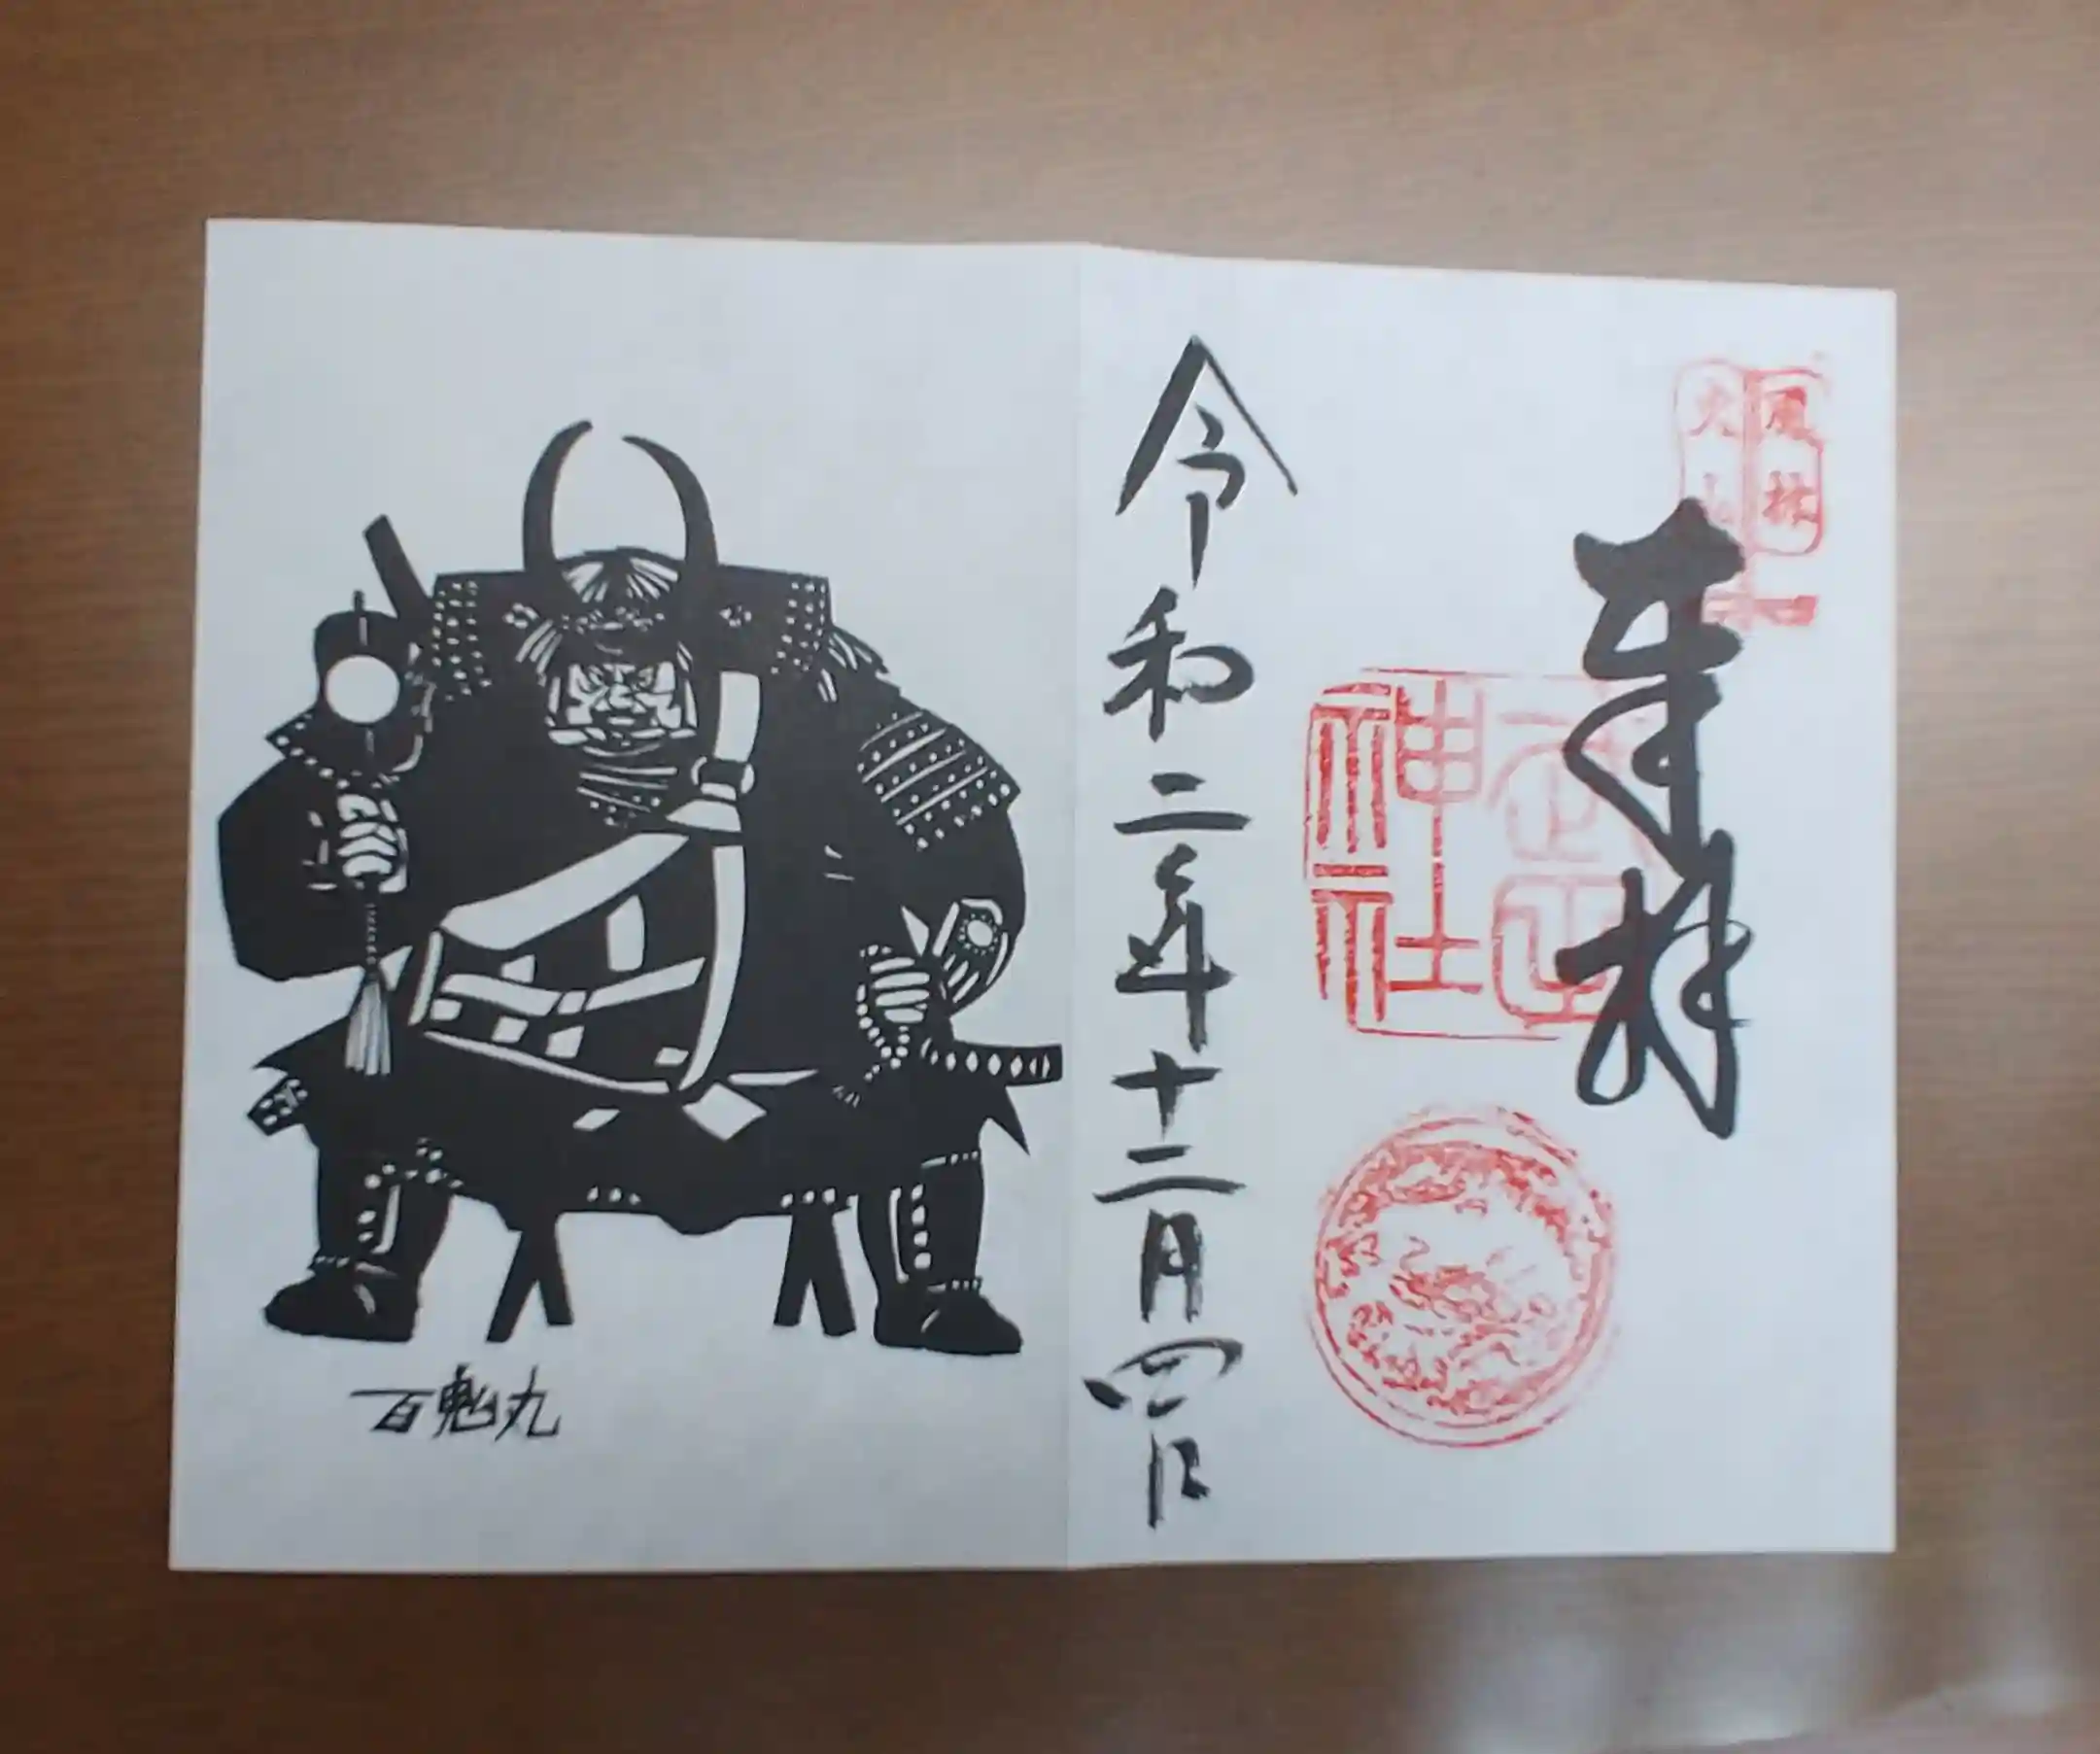 風林
火山
奉拝
武田
神社
令和二年十二月四日
百鬼丸